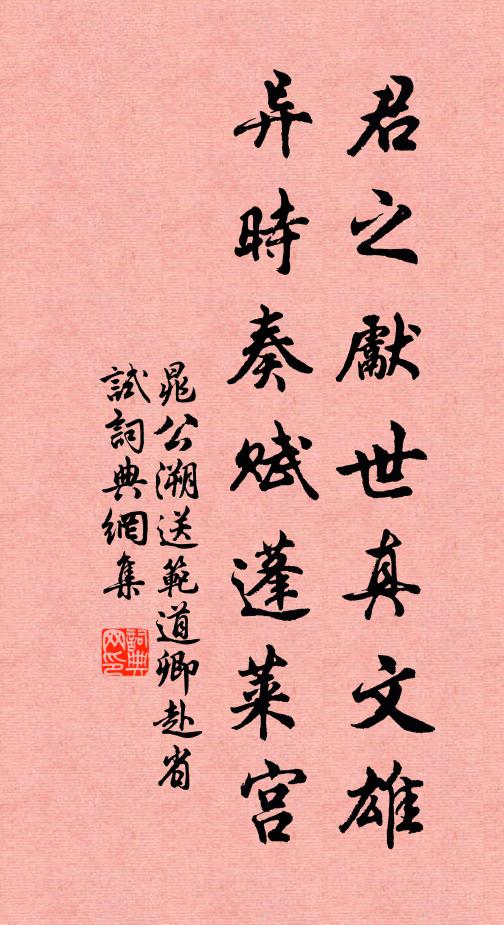 君之獻世真文雄
异時奏赋蓬莱宫
晁公溯送範道卿赴省
試詞典網集
詞典
网印